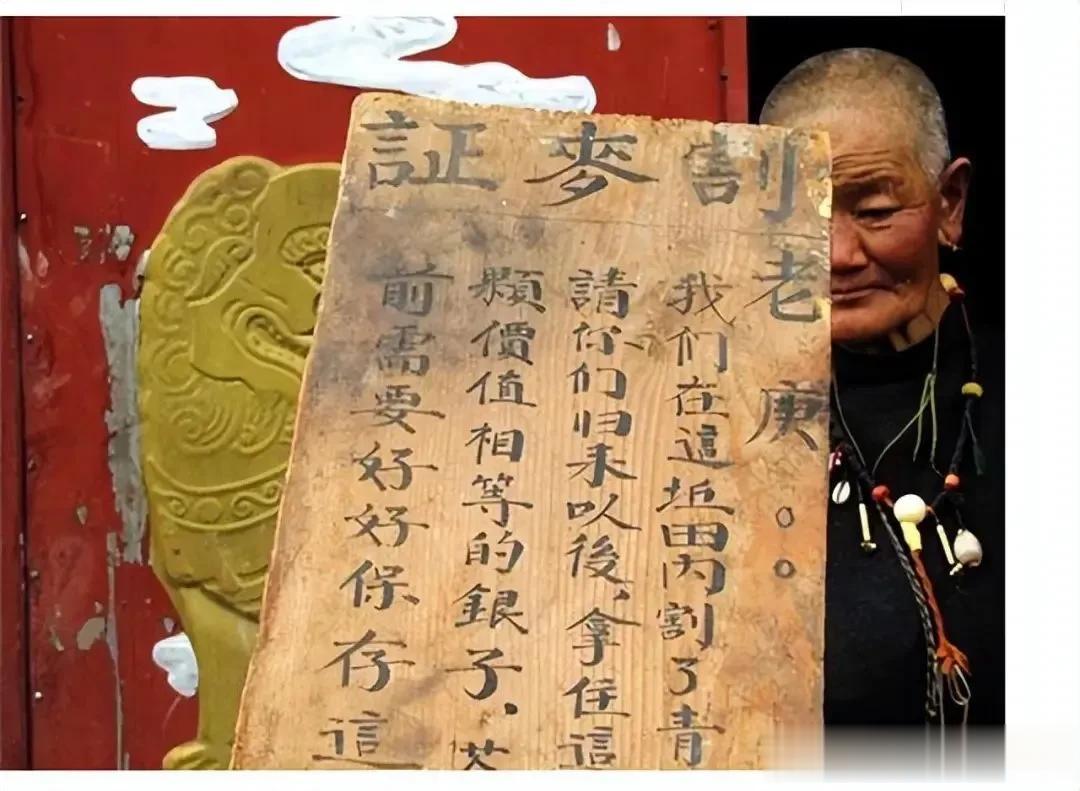 割麥証
老庚。。
我们在這坵田内割了青
請你们归来以後、拿住這
顆價值相等的銀子、
前需要好好保存這